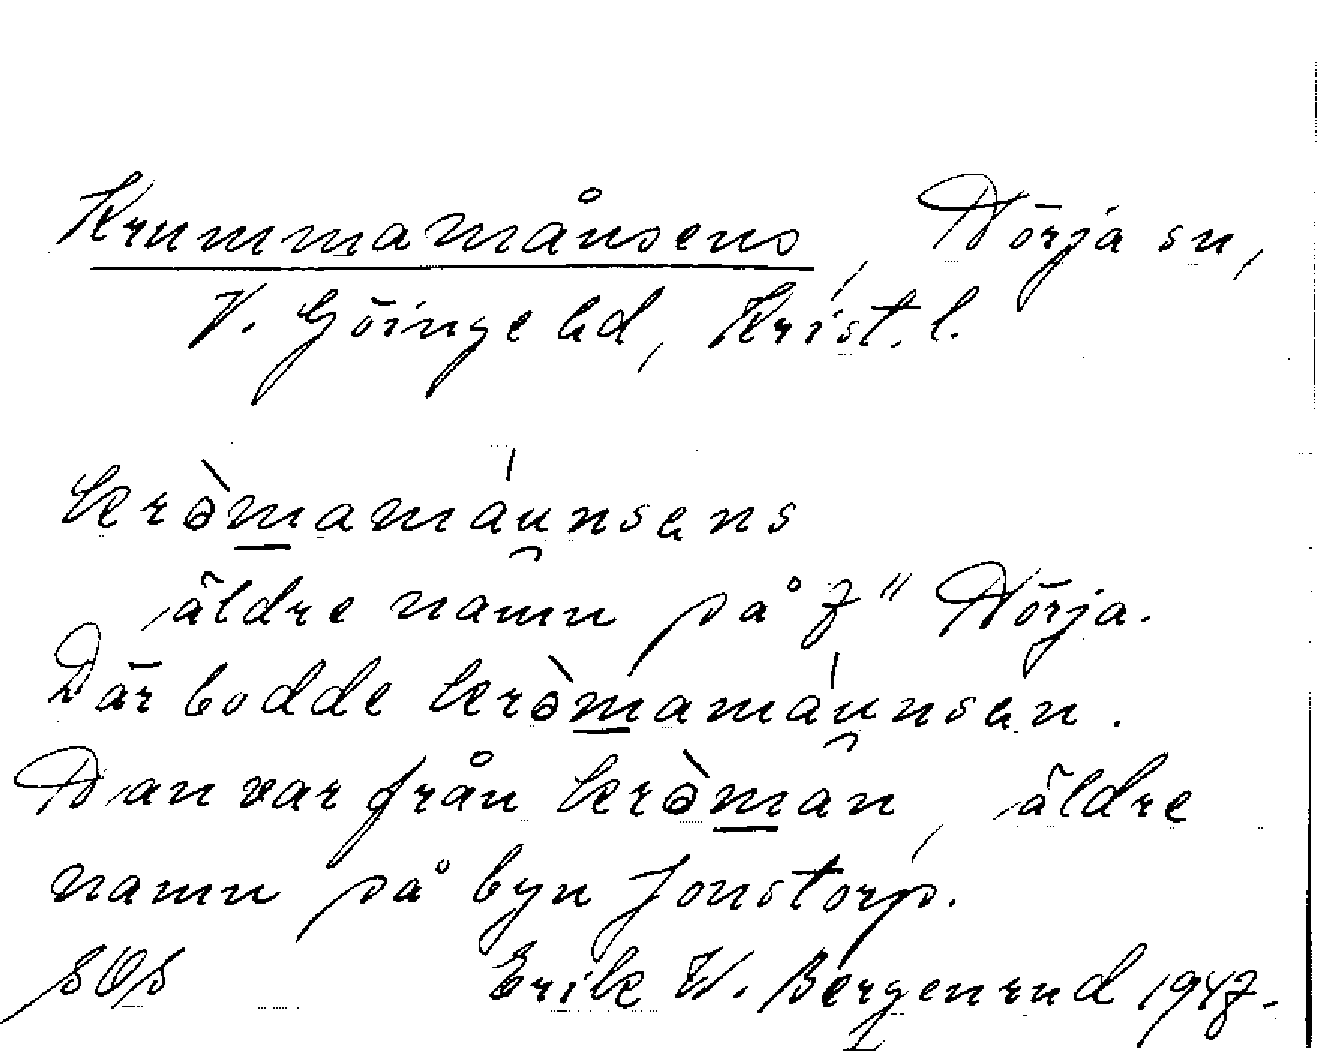 Krummamånsens, Nörja sn,
V. Göinge hd, Krist. l.
krə̀mamáu̯nsəns
äldre namn på 7" Nörja.
Där bodde krə̀mamáu̯nsən.
Dan var från krə̀man, äldre
namn på byn Jonstorp.
Erik W. Bergenrud 1947.